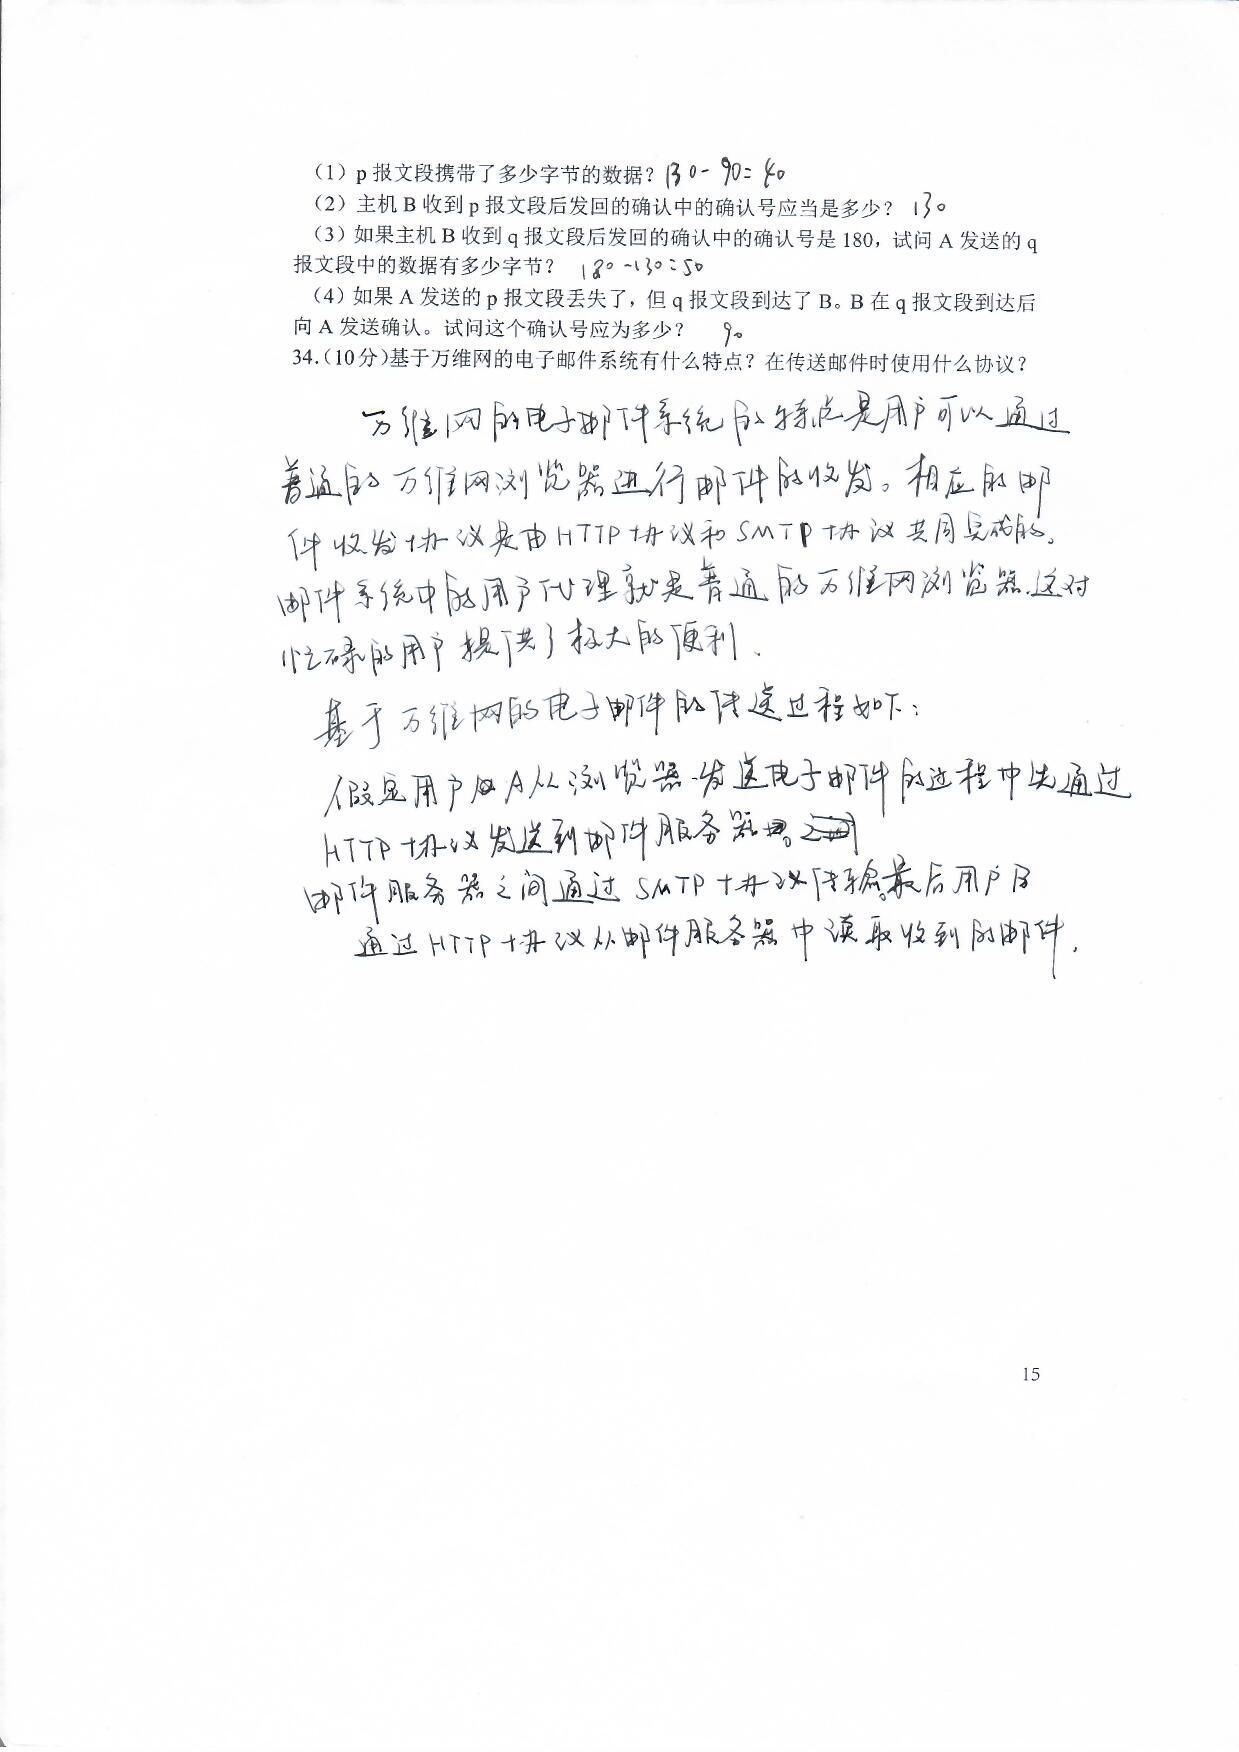 （1）p 报文段携带了多少字节的数据？ 130-90=40
（2）主机 B 收到 p 报文段后发回的确认中的确认号应当是多少？ 130
（3）如果主机 B 收到 q 报文段后发回的确认中的确认号是 180，试问 A 发送的 q
报文段中的数据有多少字节？ 180-130=50
（4）如果 A 发送的 p 报文段丢失了，但 q 报文段到达了 B。B 在 q 报文段到达后
向 A 发送确认。试问这个确认号应为多少？ 90
34.（10 分）基于万维网的电子邮件系统有什么特点？在传送邮件时使用什么协议？
万维网的电子邮件系统的特点是用户可以通过
普通的万维网浏览器进行邮件的收发。相应的邮
件收发协议是由HTTP协议和SMTP协议共同完成的。
邮件系统中的用户代理就是普通的万维网浏览器.这对
忙碌的用户提供了极大的便利.
基于万维网的电子邮件的传送过程如下：
假定用户A从浏览器发送电子邮件的过程中先通过
HTTP协议发送到邮件服务器。
邮件服务器之间通过SMTP协议传输。最后用户B
通过HTTP协议从邮件服务器中读取收到的邮件.
15